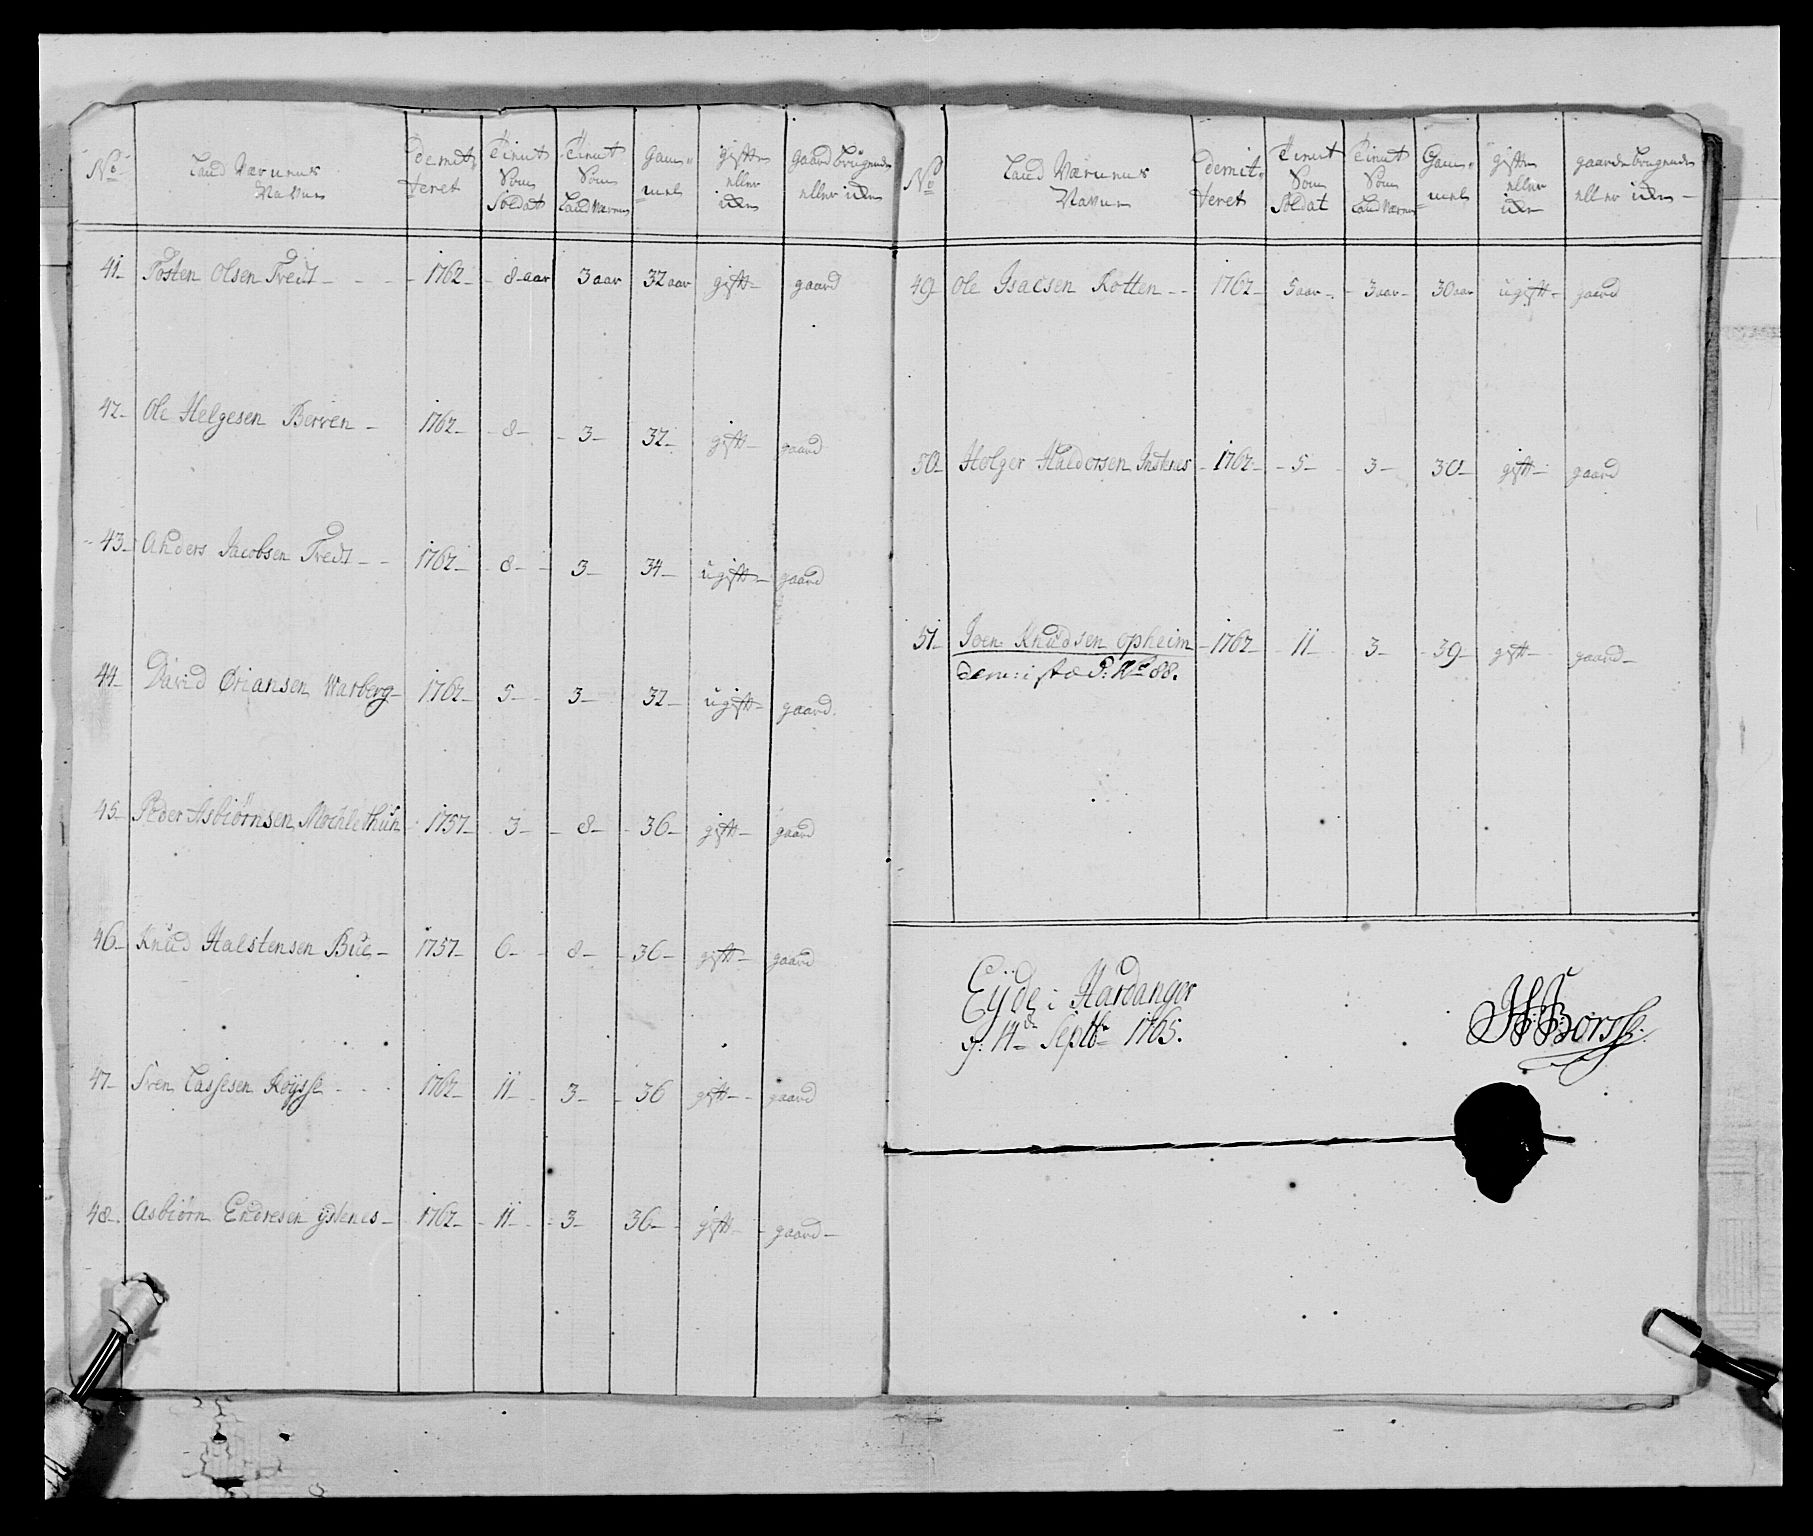 No
Land Værnens
Navn
demit-
teret
Tient
Som
Soldat
Tient
Som
Land Værn
Gam-
mel
gift
eller
icke
gaardbrugende
eller icke
41 Tosten Olsen Tvedt - 1762 - 8 aar 3 aar 32 aar gift - gaard
42 - Ole Helgesen Berven - 1762 - 8 - 3 - 32 - gift - gaard
43 - Anders Jacobsen Tvedt - 1762 - 8 - 3 - 34 - ugift - gaard
44 - David Ørjansen Warberg - 1762 - 5 - 3 - 32 - ugift - gaard
45 - Peder Asbiørnsen - 1757 - 3 - 8 - 36 - gift - gaard
46 - Knud Halstensen Bue - 1757 - 6 - 8 - 36 - gift - gaard
47 - Sven Lassesen Røysse - 1762 - 11 - 3 - 36 gift - gaard
48 - Asbiørn Endresen ystenes - 1762 - 11 - 3 - 36 - gift - gaard -
No
Land Værnens
Navn
demit-
teret
Tient
Som
Soldat
Tient
Som
Land Værn
Gam-
mel
gift
eller
icke
gaardebrugende
eller icke -
49 Ole Isacsen Kotten - 1762 - 5 aar - 3 aar - 30 aar ugift - gaard
50 - Helger Haldorsen - 1762 - 5 - 3 - 30 - gift - gaard
51 - Joen Knudsen opheim - 1762 - 11 - 3 - 39 - gift - gaard -
P: No 88.
Eyde i Hardanger
d: 14de Septbr 1765.